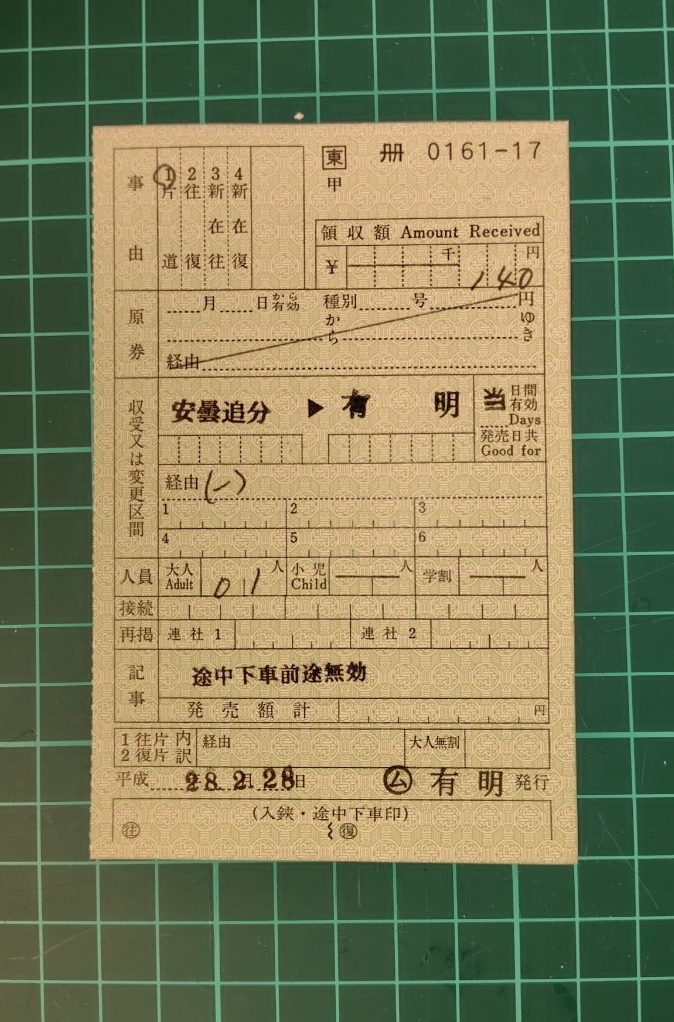 東 冊 0161-17
甲
事由
1 片道
2 往復
3 新在往
4 新在復
領収額 Amount Received
¥ 千 円
140
原券
月 日から有効 種別 号 円
から ゆき
経由
収受又は変更区間
安曇追分 ▶ 有明
当 日間有効 Days
発売日共 Good for
経由 (一)
1 2 3
4 5 6
人員 大人 Adult 01人 小児 Child 人 学割 人
接続
再掲 連社 1 連社 2
記事 途中下車前途無効
発売額計 円
1 往片 内訳 経由 大人無割
2 復片
平成 28年2月28日 ㋰ 有明 発行
(入鋏・途中下車印)
往 復